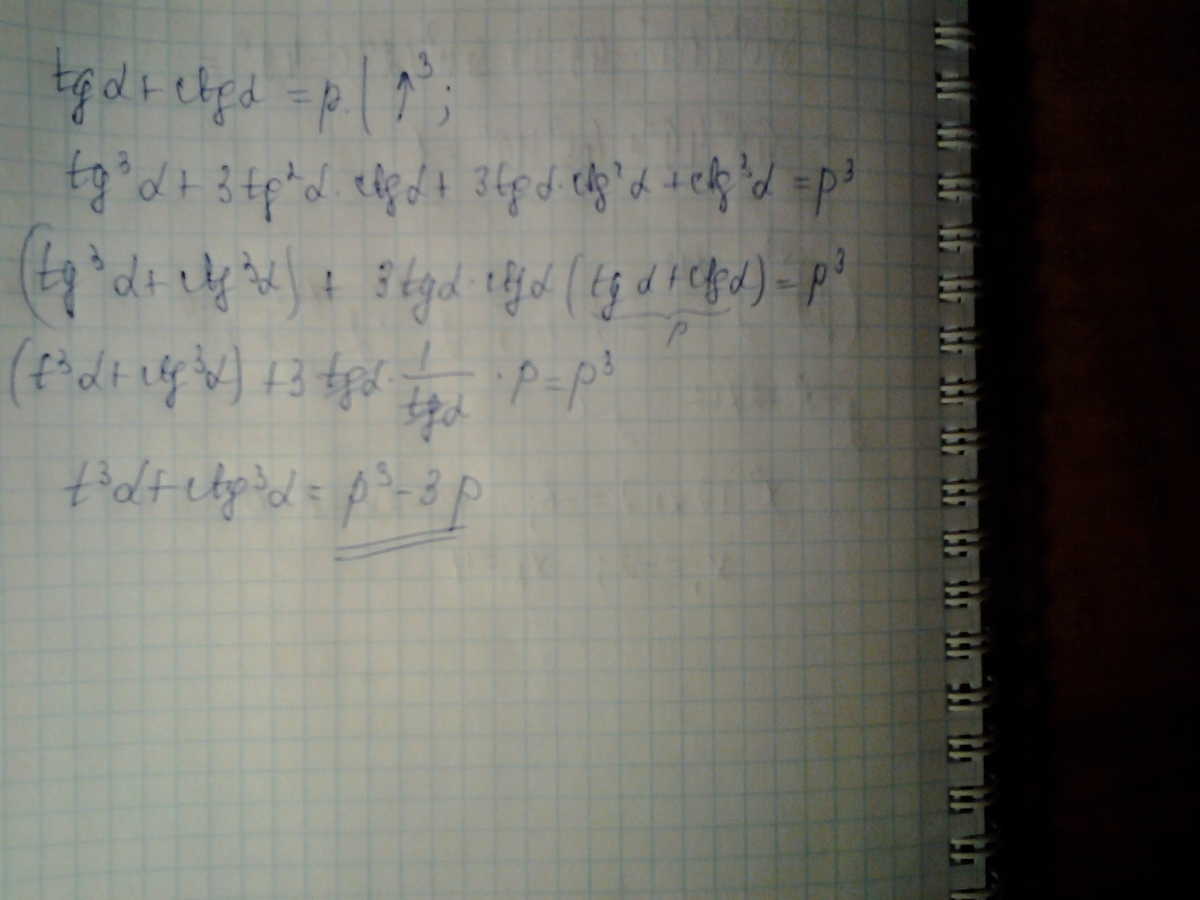 tg α + ctg α = p. | ↑³;
tg³ α + 3 tg² α · ctg α + 3 tg α · ctg² α + ctg³ α = p³
(tg³ α + ctg³ α) + 3 tg α · ctg α (tg α + ctg α) = p³
p
(t³ α + ctg³ α) + 3 tg α · 1/tg α · p = p³
t³ α + ctg³ α = p³ - 3p